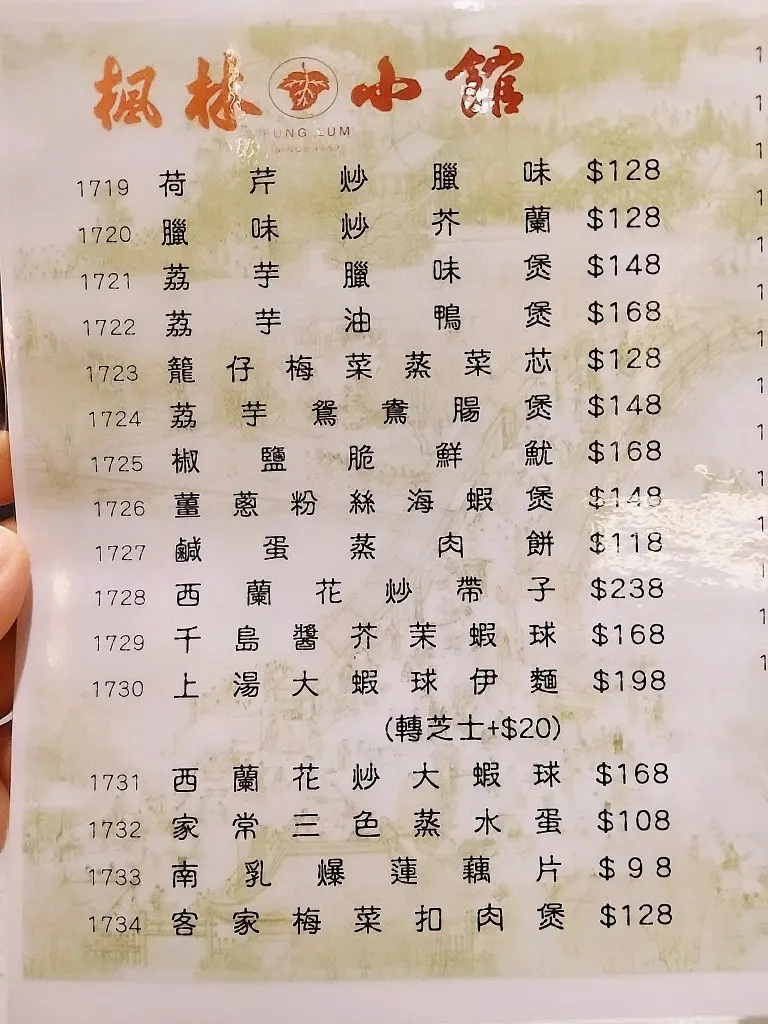 楓林小館
FUNG LUM
1719 荷芹炒臘味 $128
1720 臘味炒芥蘭 $128
1721 荔芋臘味煲 $148
1722 荔芋油鴨煲 $168
1723 籠仔梅菜蒸菜芯 $128
1724 荔芋鴛鴦腸煲 $148
1725 椒鹽脆鮮魷 $168
1726 薑蔥粉絲海蝦煲 $148
1727 鹹蛋蒸肉餅 $118
1728 西蘭花炒帶子 $238
1729 千島醬芥茉蝦球 $168
1730 上湯大蝦球伊麵 $198
(轉芝士+$20)
1731 西蘭花炒大蝦球 $168
1732 家常三色蒸水蛋 $108
1733 南乳爆蓮藕片 $98
1734 客家梅菜扣肉煲 $128